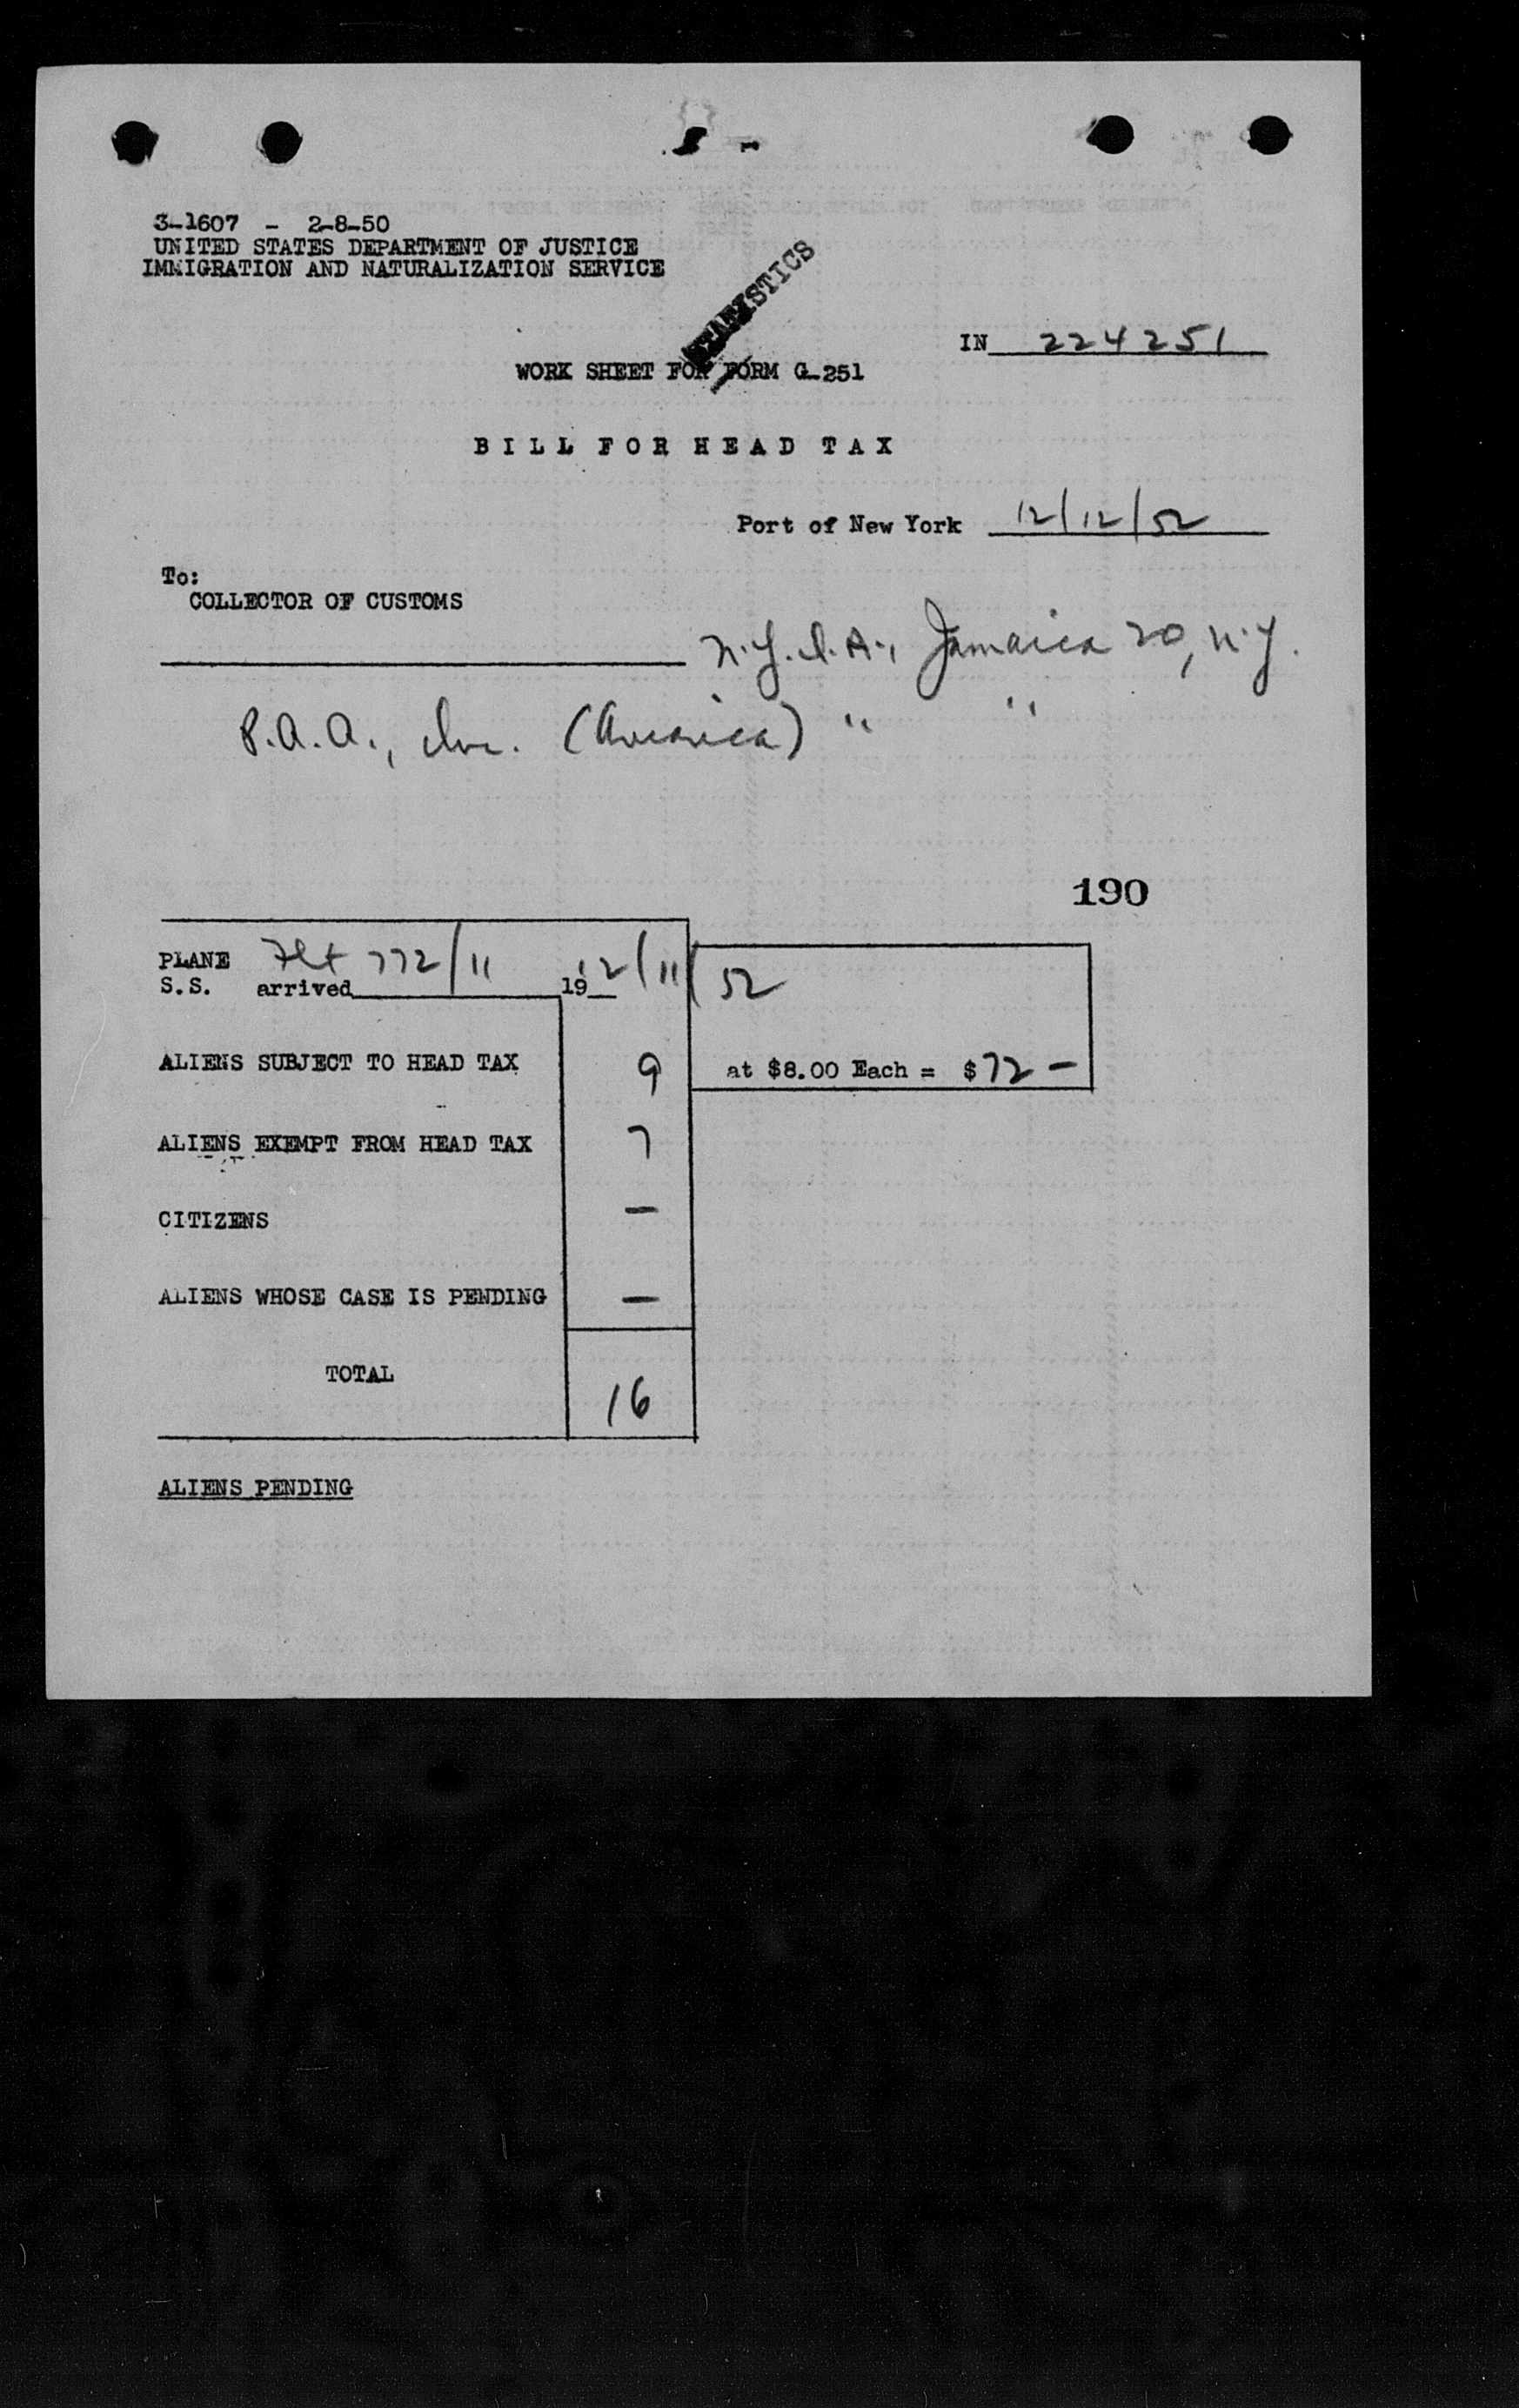 3-1607 - 2-8-50
UNITED STATES DEPARTMENT OF JUSTICE
IMMIGRATION AND NATURALIZATION SERVICE
STATISTICS
IN 224251
WORK SHEET FOR FORM G-251
BILL FOR HEAD TAX
Port of New York 12/12/52
To:
COLLECTOR OF CUSTOMS
N.Y.I.A., Jamaica 20, N.Y.
P.A.A., Inc. (America) " "
190
PLANE Flt 772/11 12/11/52
S.S. arrived 19
ALIENS SUBJECT TO HEAD TAX 9 at $8.00 Each = $72 -
ALIENS EXEMPT FROM HEAD TAX 7
CITIZENS -
ALIENS WHOSE CASE IS PENDING -
TOTAL 16
ALIENS PENDING